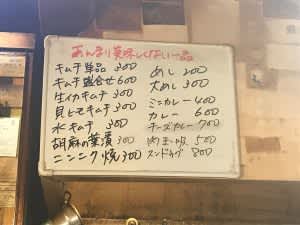 あんまり美味しくない一品
キムチ単品 300
キムチ盛合せ 600
生イカキムチ 300
貝ヒモキムチ 300
水キムチ 300
胡麻の葉漬 300
ニンニク焼 300
めし 200
大めし 300
ミニカレー 400
カレー 600
チーズカレー 700
500
スンドゥブ 800